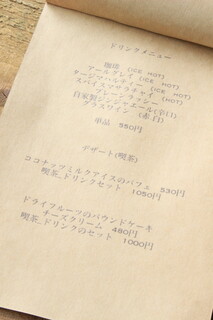 ドリンクメニュー
珈琲 (ICE HOT)
アールグレイ (ICE HOT)
タージマハルティー (ICE HOT)
スパイスマサラチャイ (ICE HOT)
プレーンラッシー
自家製ジンジャエール(辛口)
グラスワイン (赤,白)
単品 550円
デザート(喫茶)
ココナッツミルクアイスのパフェ 530円
喫茶_ドリンクセット 1050円
ドライフルーツのパウンドケーキ
チーズクリーム 480円
喫茶_ドリンクのセット 1000円